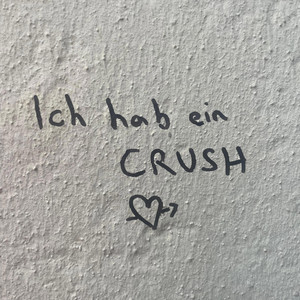 Ich hab ein
CRUSH